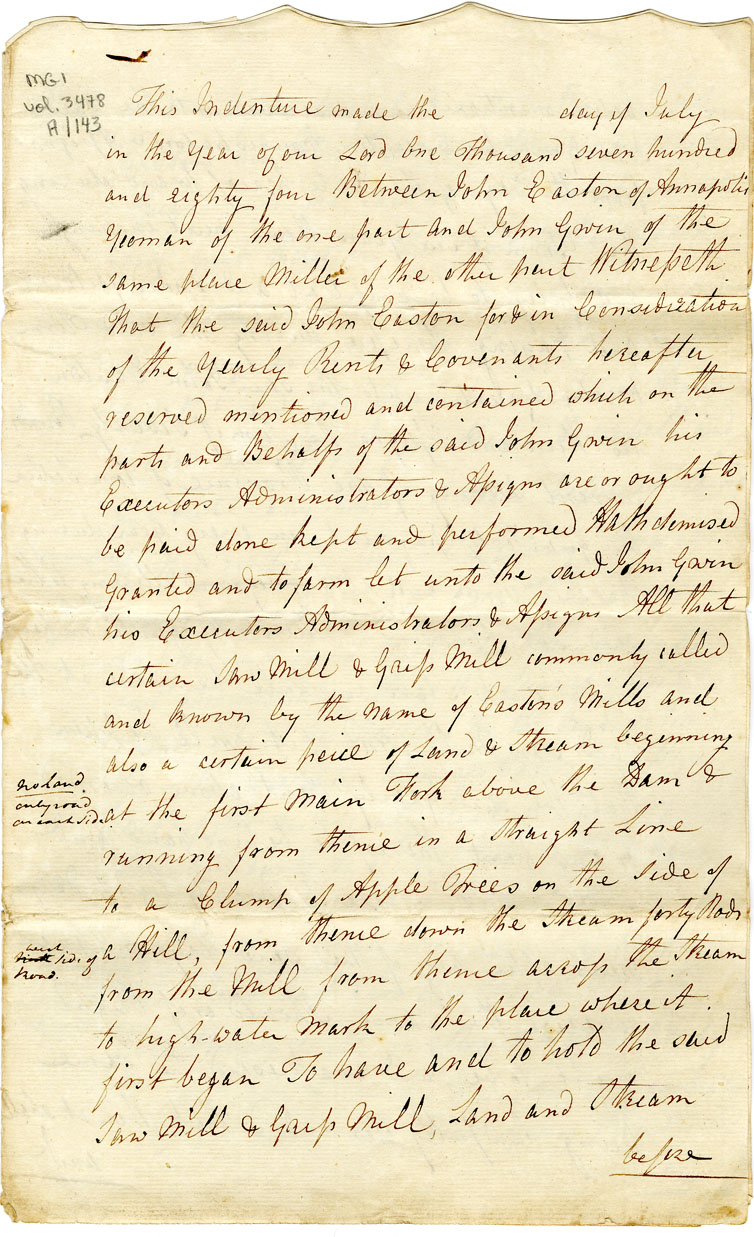 MG1
vol. 3478
A/143
This Indenture made the day of July
in the Year of our Lord One Thousand seven hundred
and eighty four Between John Easton of Annapolis
Yeoman of the one part and John Gwin of the
same place Miller of the other part Witnesseth
that the said John Easton for & in Consideration
of the Yearly Rents & Covenants hereafter
reserved mentioned and contained which on the
parts and Behalfs of the said John Gwin his
Executors Administrators & Assigns are or ought to
be paid done kept and performed Hath demised
Granted and to farm let unto the said John Gwin
his Executors Administrators & Assigns All that
certain Saw Mill & Griss Mill commonly called
and known by the Name of Easton's Mills and
also a certain peice of Land & Stream beginning
no Land
only road
on each Side
at the first Main Fork above the Dam &
running from thence in a Straight Line
to a Clump of Apple Trees on the Side of
west
Side of
Road.
a Hill, from thence down the Stream forty Rods
from the Mill from thence across the Stream
to high-water Mark to the place where it
first began To have and to hold the said
Saw Mill & Griss Mill, Land and Stream
before